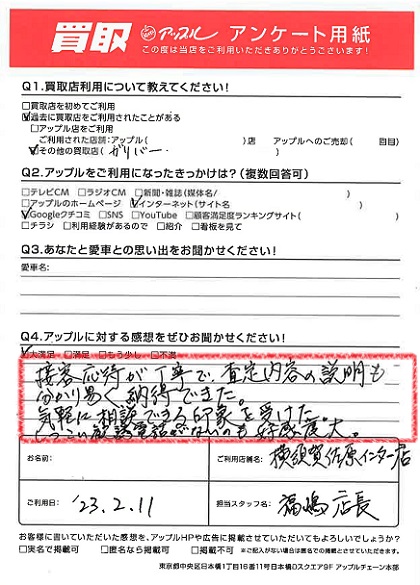 買取 アップル アンケート用紙
この度は当店をご利用いただきありがとうございます!
Q1.買取店利用について教えてください!
□買取店を初めてご利用
☑過去に買取店をご利用されたことがある
□アップル店をご利用
ご利用された店舗:アップル( )店 アップルへのご売却( 回目)
☑その他の買取店( ガリバー )
Q2.アップルをご利用になったきっかけは?(複数回答可)
□テレビCM □ラジオCM □新聞・雑誌(媒体名/ )
□アップルのホームページ ☑インターネット(サイト名 )
☑Googleクチコミ □SNS □YouTube □顧客満足度ランキングサイト( )
□チラシ □利用経験があるので □紹介 □看板を見て
Q3.あなたと愛車との思い出をお聞かせください!
愛車名:
Q4.アップルに対する感想をぜひお聞かせください!
☑大満足 □満足 □もう少し □不満
接客応待が丁寧で、査定内容の説明も
分かり易く納得できた。
気軽に相談できる印象を受けた。
しつこい勧誘電話がないのも好感度大。
お名前:
ご利用店舗名: 横須賀佐原インター店
ご利用日: '23.2.11
担当スタッフ名: 福嶋店長
お客様に書いていただいた感想を、アップルHPや広告に掲載させていただいてもよろしいでしょうか?
□実名で掲載可 □匿名なら掲載可 □掲載不可 ※ご記入がない場合は匿名での掲載とさせていただきます。
東京都中央区日本橋1丁目16番11号日本橋Dスクエア9F アップルチェーン本部